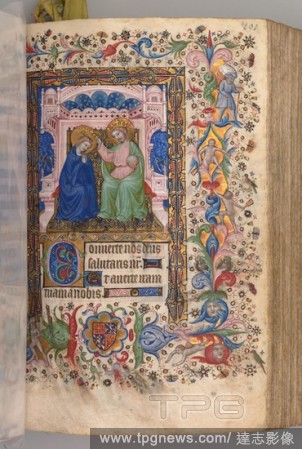 Conuerte nos deus
salutaris nr̄.
Et auerte iram
tuam a nobis
TPG
www.tpgnews.com/達志影像